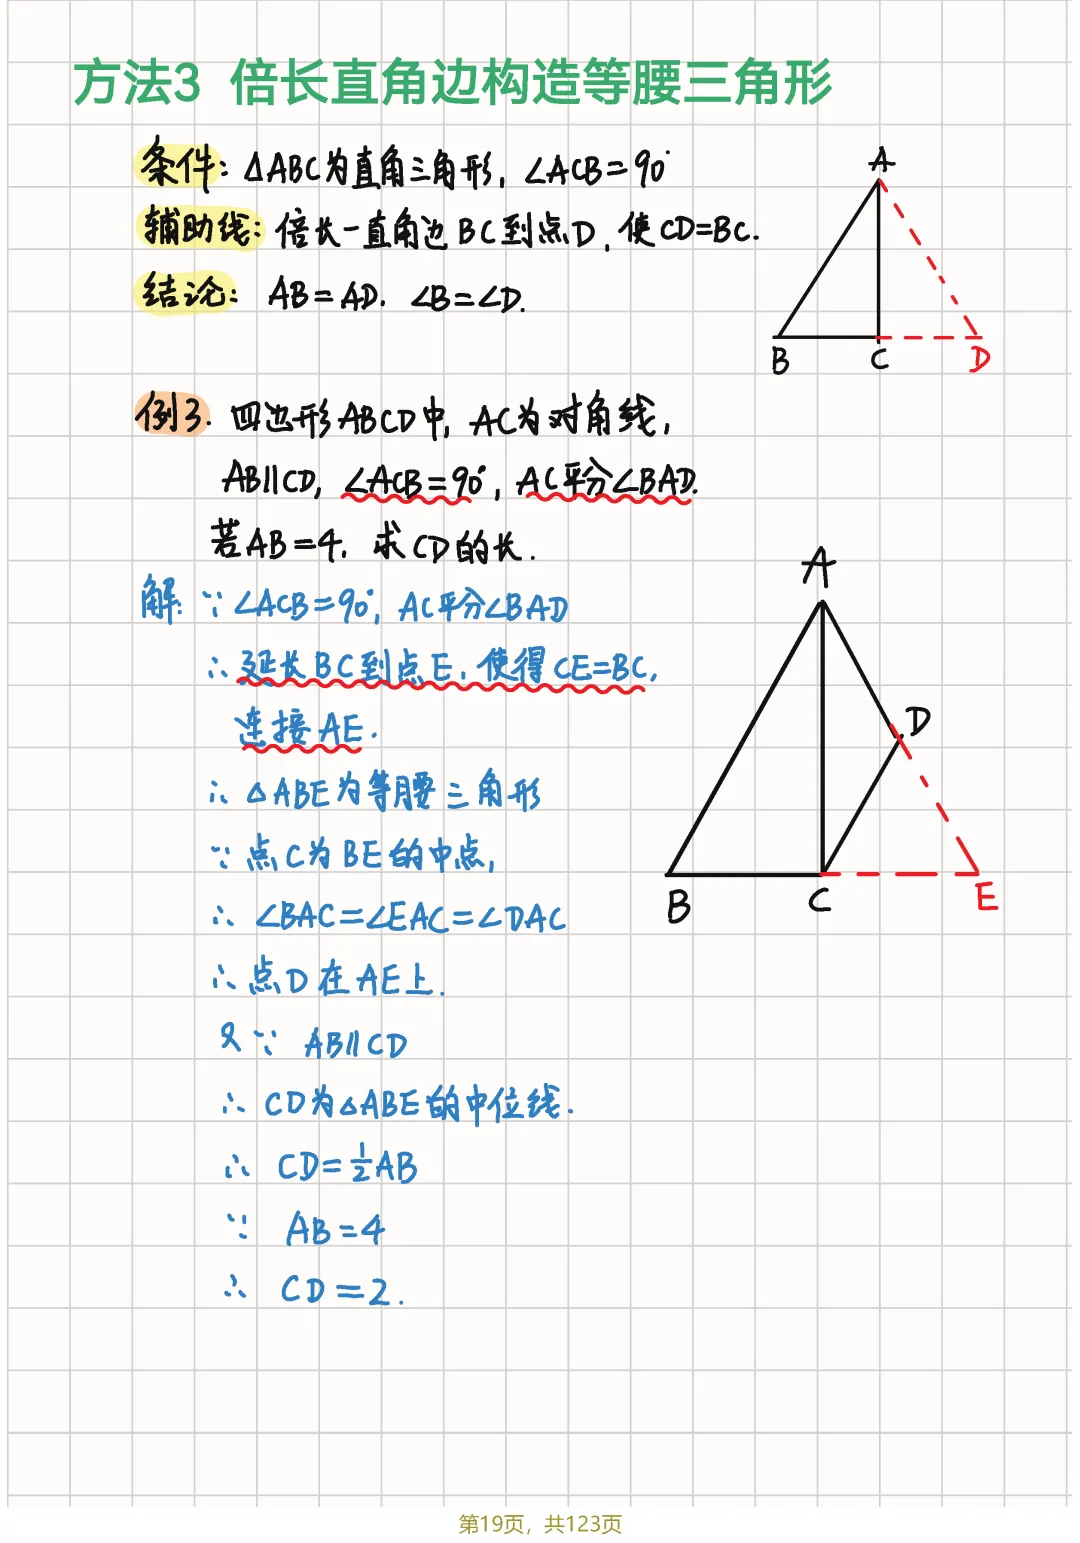 方法3 倍长直角边构造等腰三角形
条件: △ABC为直角三角形, ∠ACB=90°
辅助线: 倍长一直角边BC到点D, 使CD=BC.
结论: AB=AD. ∠B=∠D.
A
B
C
D
例3. 四边形ABCD中, AC为对角线,
AB∥CD, ∠ACB=90°, AC平分∠BAD.
若AB=4, 求CD的长.
解: ∵ ∠ACB=90°, AC平分∠BAD
∴ 延长BC到点E, 使得CE=BC,
连接AE.
∴ △ABE为等腰三角形
∵ 点C为BE的中点,
∴ ∠BAC=∠EAC=∠DAC
∴ 点D在AE上.
又∵ AB∥CD
∴ CD为△ABE的中位线.
∴ CD=½AB
∵ AB=4
∴ CD=2.
A
D
B
C
E
第19页，共123页